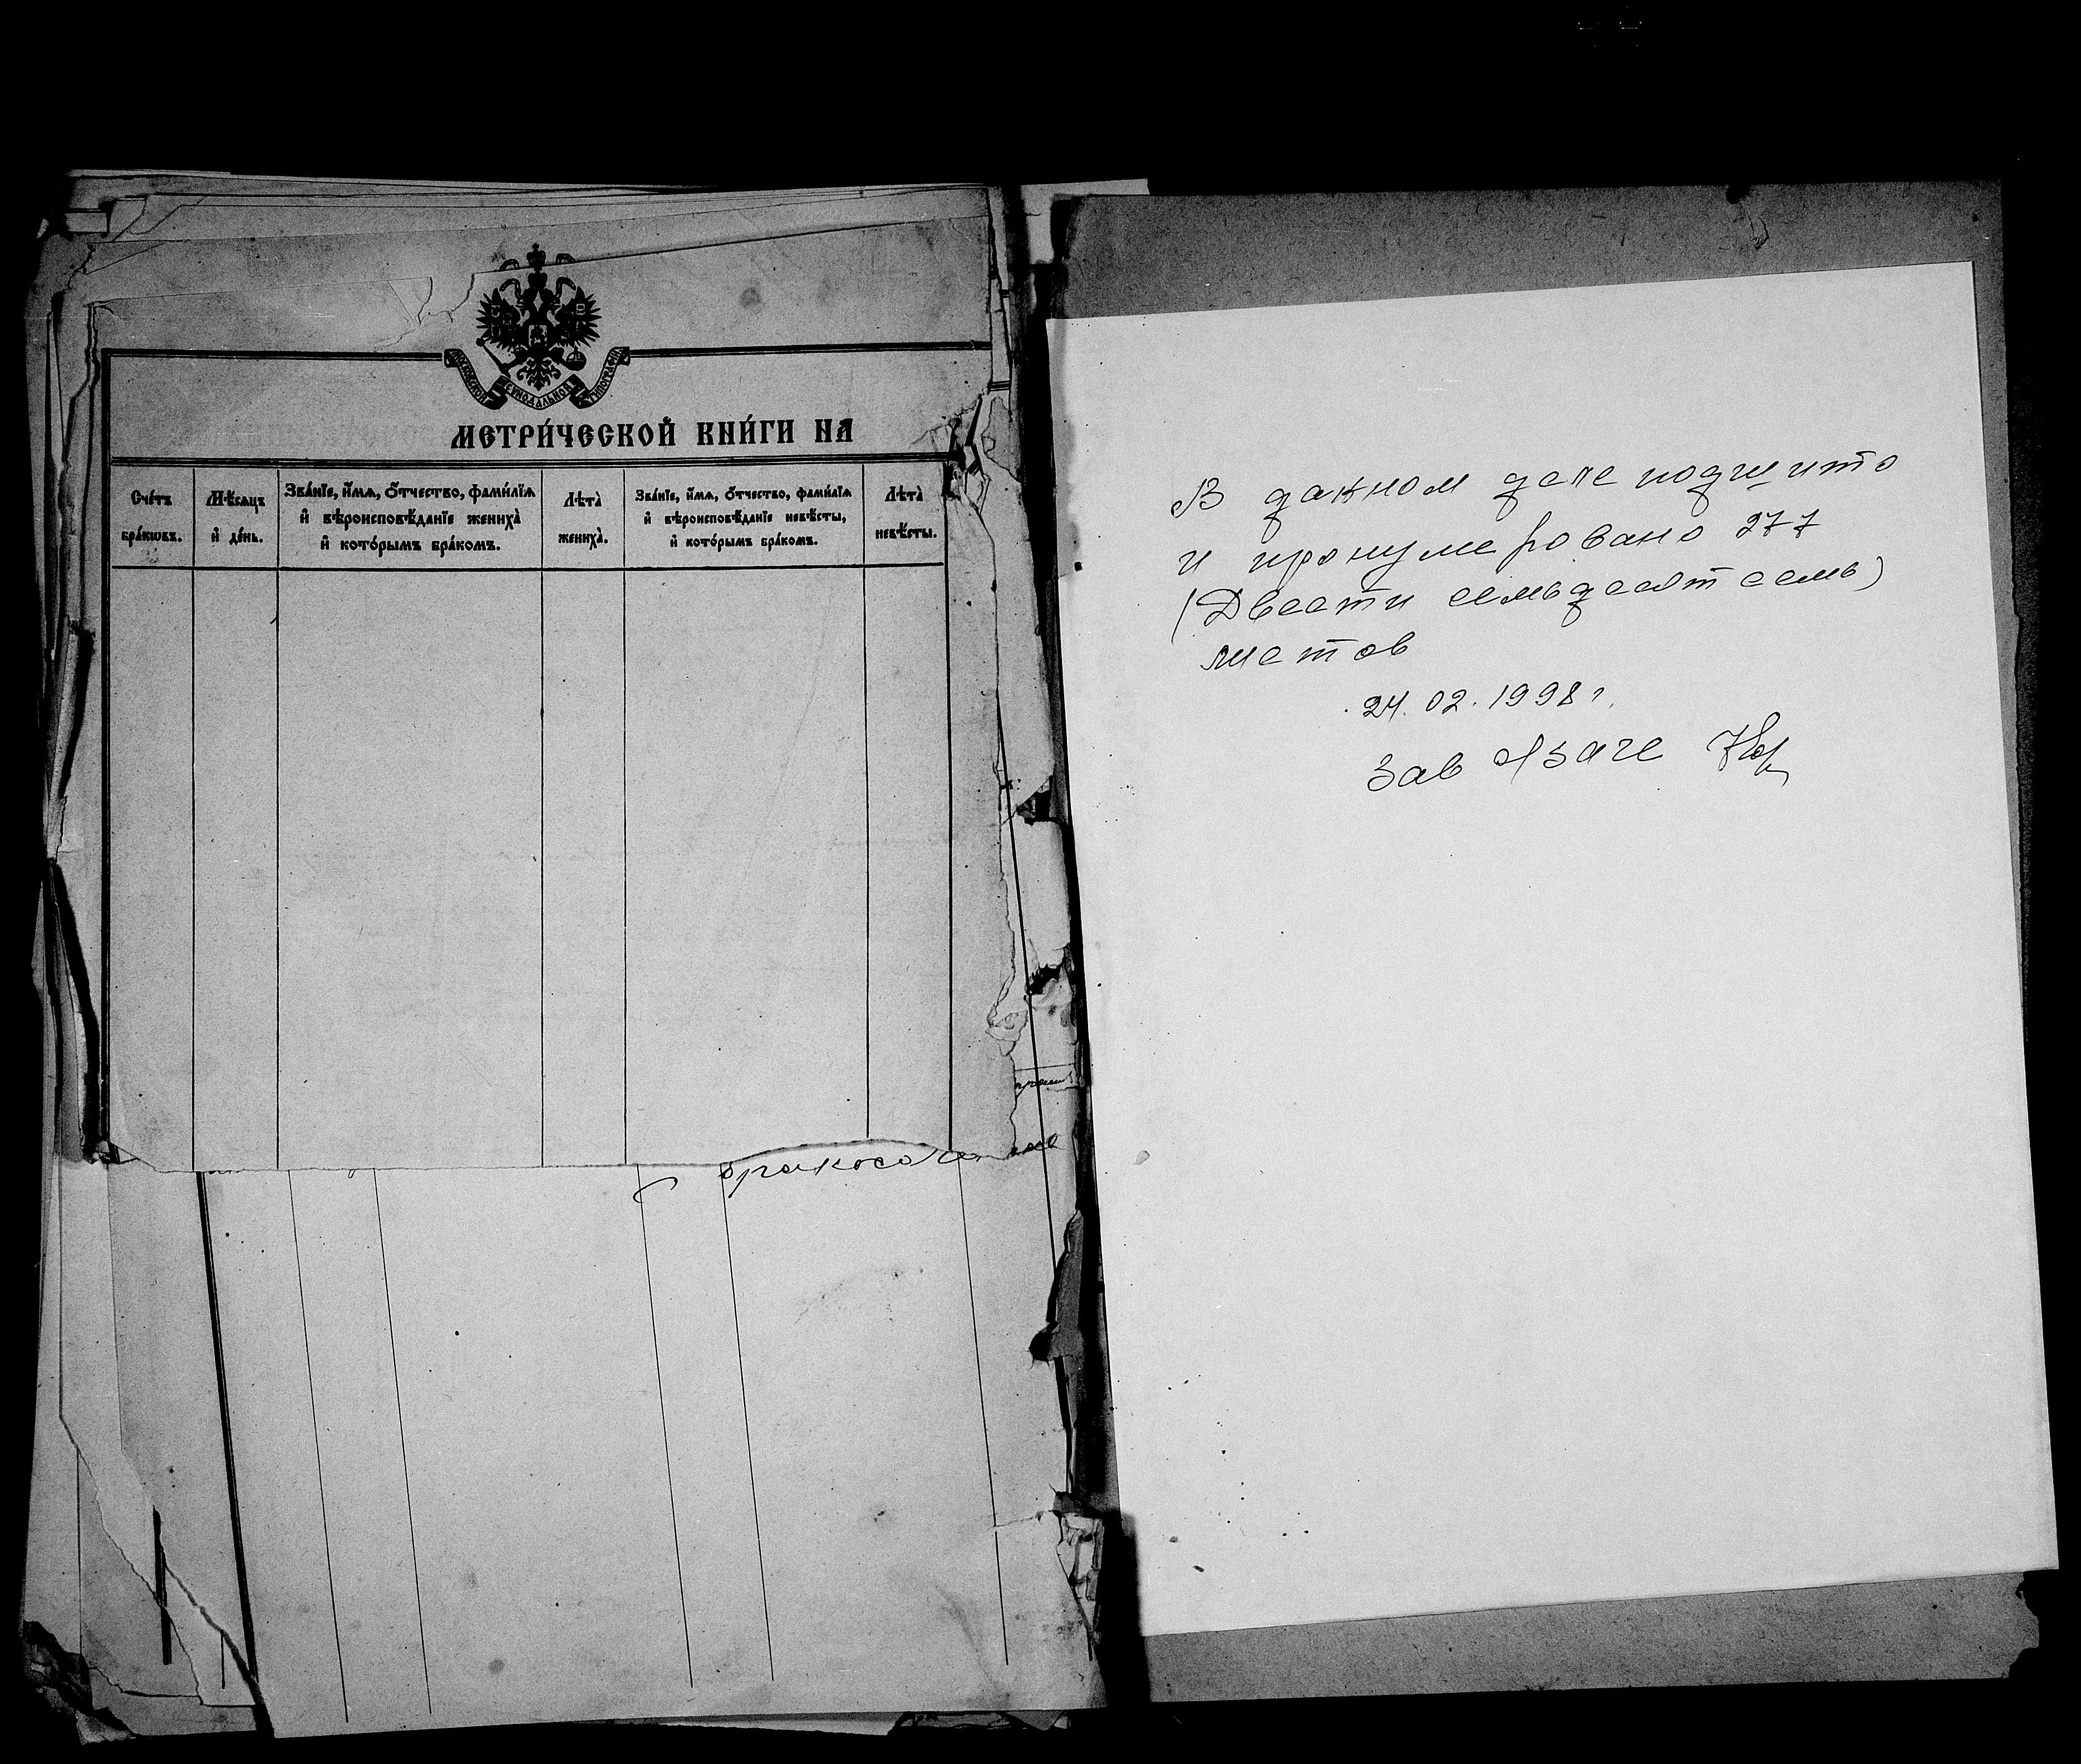 МОСКОВСКОЙ СѴНОДАЛЬНОЙ ТИПОГРАФІИ
МЕТРИ́ЧЕСКОЙ КНИ́ГИ НА
Сче́тъ
бра́кѡвъ.
Мѣ́сѧцъ
и҆ де́нь.
Зва́нїе, и҆́мѧ, ѻ҆́тчество, фами́лїѧ
и҆ вѣроисповѣ́данїе жениха̀
и҆ кото́рымъ бра́комъ.
Лѣта̀
жениха̀.
Зва́нїе, и҆́мѧ, ѻ҆́тчество, фами́лїѧ
и҆ вѣроисповѣ́данїе невѣ́сты,
и҆ кото́рымъ бра́комъ.
Лѣта̀
невѣ́сты.
бракосоче
В данном деле подшито
и пронумеровано 277
(Двести семьдесят семь)
листов
24.02.1998 г.
Зав